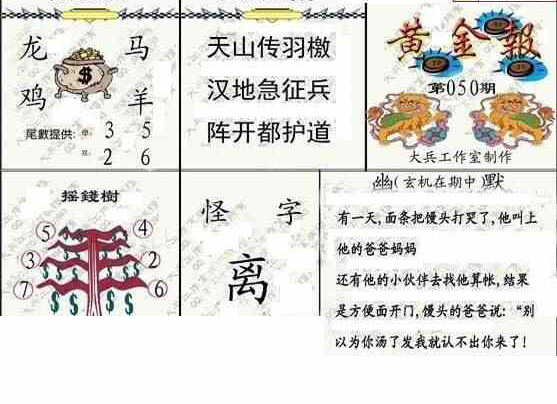 龙 马
鸡 羊
尾數提供: 单: 3 5
双: 2 6
天山传羽檄
汉地急征兵
阵开都护道
黄金報
第050期
大兵工作室制作
摇錢樹
5 4
3 2
7 6
怪 字
离
幽(玄机在期中)默
有一天,面条把馒头打哭了,他叫上
他的爸爸妈妈
还有他的小伙伴去找他算帐,结果
是方便面开门,馒头的爸爸说:“别
以为你汤了发我就认不出你来了!